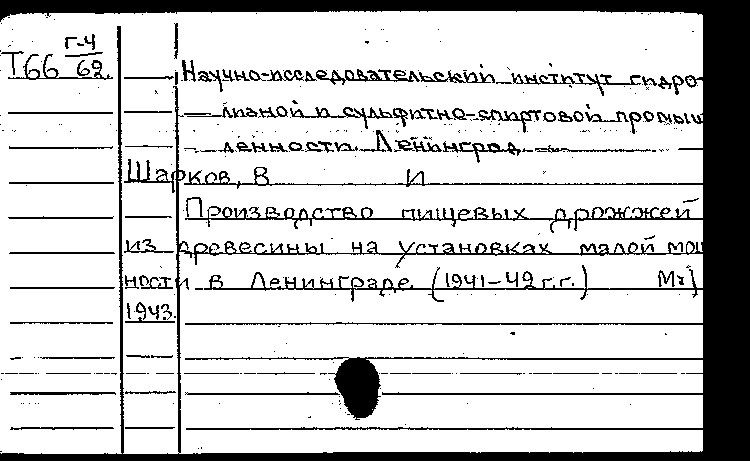 Т66 Г-4
62.
Научно-исследовательский институт гидро-
лизной и сульфитно-спиртовой промыш
ленности. Ленинград
Шарков, В И
Производство пищевых дрожжей
из древесины на установках малой мощ
ности в Ленинграде (1941-42 г.г.)
1943.